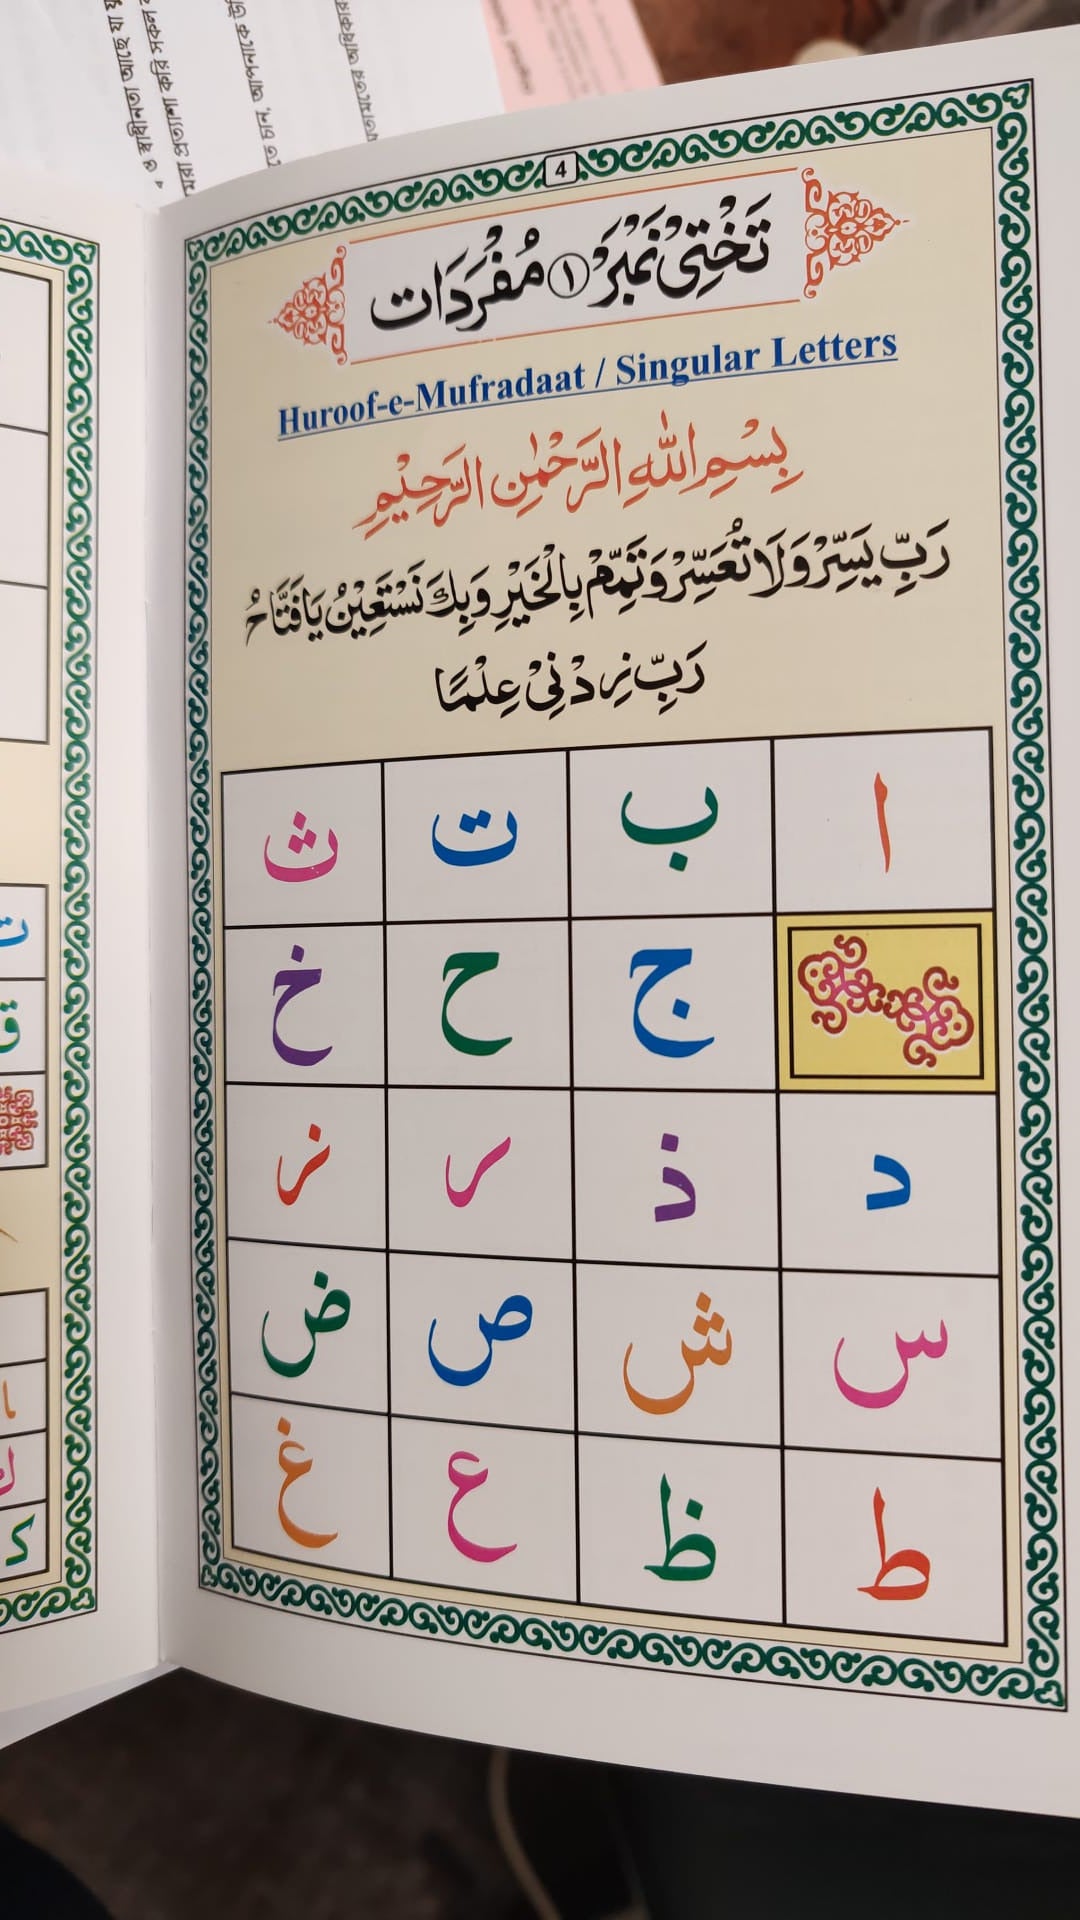 4
تَخْتِیْ نَمْبَرْ ١ مُفْرَدَات
Huroof-e-Mufradaat / Singular Letters
بِسْمِ اللهِ الرَّحْمٰنِ الرَّحِيْمِ
رَبِّ يَسِّرْ وَلَا تُعَسِّرْ وَتَمِّمْ بِالْخَيْرِ وَبِكَ نَسْتَعِيْنُ يَا فَتَّاحُ
رَبِّ زِدْنِيْ عِلْمًا
ا ب ت ث
ج ح خ
د ذ ر ز
س ش ص ض
ط ظ ع غ